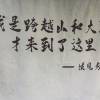 我是跨越山和大海
才来到了这里